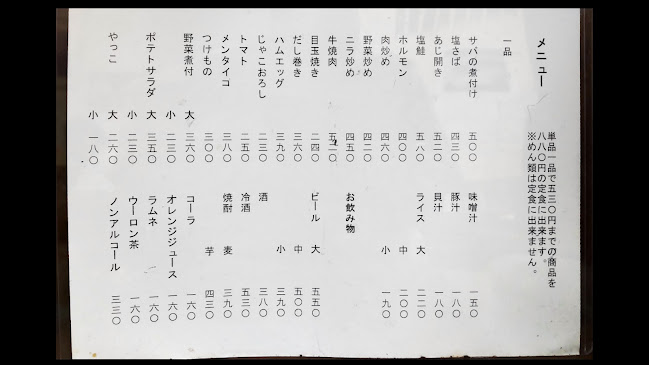 メニュー
単品一品で五三〇円までの商品を
八八〇円の定食に出来ます。
※めん類は定食に出来ません。
一品
サバの煮付け 五〇〇
塩さば 四三〇
あじ開き 五二〇
塩鮭 五八〇
ホルモン 四〇〇
肉炒め 四六〇
野菜炒め 四二〇
ニラ炒め 四五〇
牛焼肉
目玉焼き 二四〇
だし巻き 三六〇
ハムエッグ 三九〇
じゃこおろし 二三〇
トマト 二五〇
メンタイコ 三八〇
つけもの 三〇〇
野菜煮付 大 三六〇
小 二三〇
ポテトサラダ 大 三五〇
小 二三〇
やっこ 大 二六〇
小 一八〇
味噌汁 一五〇
豚汁 一八〇
貝汁 一八〇
ライス 大 二二〇
中 二〇〇
小 一九〇
お飲み物
ビール 大 五五〇
中 五〇〇
小 三九〇
酒 三八〇
冷酒 五三〇
焼酎 麦 三九〇
芋 四三〇
コーラ 一六〇
オレンジジュース 一六〇
ラムネ 一六〇
ウーロン茶 一六〇
ノンアルコール 三三〇